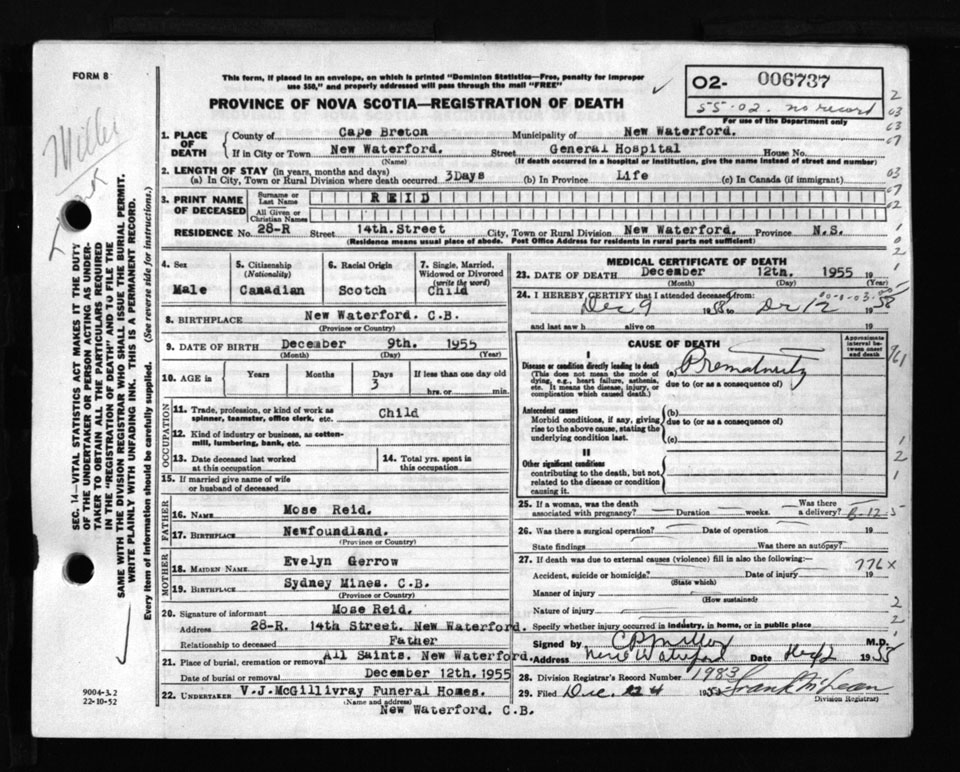 FORM 8
This form, if placed in an envelope, on which is printed "Dominion Statistics—Free, penalty for improper
use $50," and properly addressed will pass through the mail "FREE"
PROVINCE OF NOVA SCOTIA—REGISTRATION OF DEATH
02- 006737
55-02. no record
For use of the Department only
1. PLACE OF DEATH
County of Cape Breton Municipality of New Waterford.
If in City or Town New Waterford. Street General Hospital House No.
(Name) (If death occurred in a hospital or institution, give the name instead of street and number)
2. LENGTH OF STAY (in years, months and days)
(a) In City, Town or Rural Division where death occurred 3Days (b) In Province Life (c) In Canada (if immigrant)
3. PRINT NAME OF DECEASED
Surname or Last Name REID
All Given or Christian Names
RESIDENCE No. 28-R Street 14th.Street City, Town or Rural Division New Waterford. Province N.S.
(Residence means usual place of abode. Post Office Address for residents in rural parts not sufficient)
4. Sex Male
5. Citizenship (Nationality) Canadian
6. Racial Origin Scotch
7. Single, Married, Widowed or Divorced (write the word) Child
8. BIRTHPLACE New Waterford. C.B.
(Province or Country)
9. DATE OF BIRTH December 9th. 1955
(Month) (Day) (Year)
10. AGE in Years Months Days 3 If less than one day old hrs. or min.
OCCUPATION
11. Trade, profession, or kind of work as spinner, teamster, office clerk, etc. Child
12. Kind of industry or business, as cotton-mill, lumbering, bank, etc.
13. Date deceased last worked at this occupation
14. Total yrs. spent in this occupation
15. If married give name of wife or husband of deceased
FATHER
16. NAME Mose Reid.
17. BIRTHPLACE Newfoundland.
(Province or Country)
MOTHER
18. MAIDEN NAME Evelyn Gerrow
19. BIRTHPLACE Sydney Mines. C.B.
(Province or Country)
20. Signature of informant Mose Reid.
Address 28-R. 14th Street. New Waterford.
Relationship to deceased Father
21. Place of burial, cremation or removal All Saints. New Waterford.
Date of burial or removal December 12th. 1955
22. UNDERTAKER V.J.McGillivray Funeral Homes.
(Name and address)
New Waterford. C.B.
MEDICAL CERTIFICATE OF DEATH
23. DATE OF DEATH December 12th. 1955 19
(Month) (Day) (Year)
24. I HEREBY CERTIFY that I attended deceased from:
Dec 9 19 to 12 19
and last saw h alive on 19
CAUSE OF DEATH
Approximate interval between onset and death
I
Disease or condition directly leading to death
(This does not mean the mode of dying, e.g., heart failure, asthenia, etc. It means the disease, injury, or complication which caused death.)
(a) Prematurity
due to (or as a consequence of)
Antecedent causes
Morbid conditions, if any, giving rise to the above cause, stating the underlying condition last.
(b)
due to (or as a consequence of)
(c)
II
Other significant conditions
contributing to the death, but not related to the disease or condition causing it.
25. If a woman, was the death associated with pregnancy? Duration weeks. Was there a delivery?
26. Was there a surgical operation? Date of operation 19
State findings Was there an autopsy?
27. If death was due to external causes (violence) fill in also the following:—
Accident, suicide or homicide? Date of injury 19
(State which)
776X
Manner of injury
(How sustained)
Nature of injury
Specify whether injury occurred in industry, in home, or in public place
Signed by M.D.
Address New Waterford Date 1955
28. Division Registrar's Record Number 1983
29. Filed Dec. 19
Division Registrar
SEC. 14—VITAL STATISTICS ACT MAKES IT THE DUTY
OF THE UNDERTAKER OR PERSON ACTING AS UNDER-
TAKER TO OBTAIN ALL THE PARTICULARS REQUIRED
IN THE "REGISTRATION OF DEATH" AND TO FILE THE
SAME WITH THE DIVISION REGISTRAR WHO SHALL ISSUE THE BURIAL PERMIT.
WRITE PLAINLY WITH UNFADING INK. THIS IS A PERMANENT RECORD.
Every item of information should be carefully supplied. (See reverse side for instructions.)
9004-3.2
22-10-52